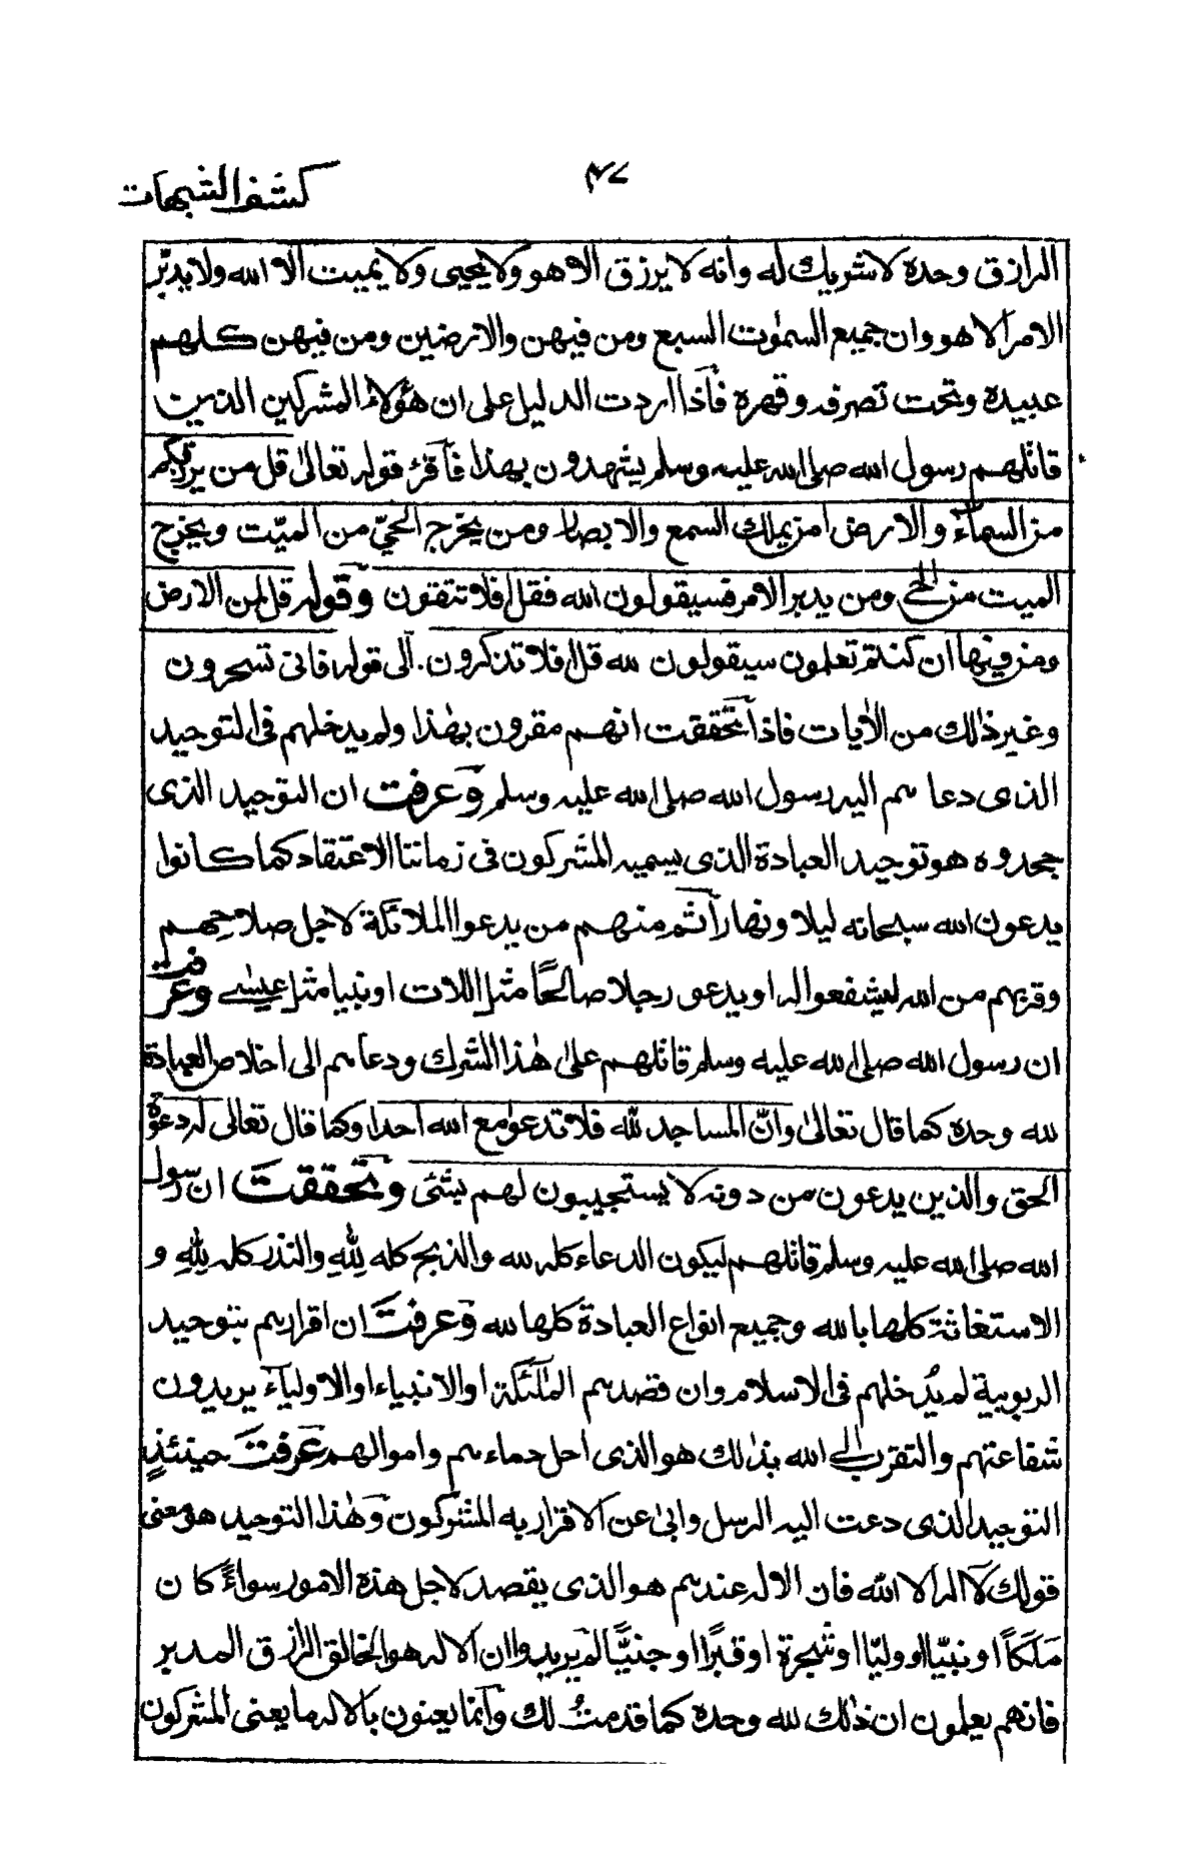 كشف الشبهات
٤٧
الرازق وحده لا شريك له وانه لا يرزق الا هو ولا يحيى ولا يميت الا الله ولا يدبّر
الامر الا هو وان جميع السمٰوٰت السبع ومن فيهن والارضين ومن فيهن كلهم
عبيده وتحت تصرفه وقهره فاذا اردت الدليل على ان هؤلاء المشركين الذين
قاتلهم رسول الله صلى الله عليه وسلم يشهدون بهذا فاقرء قوله تعالىٰ قل من يرزقكم
من السماء والارض امن يملك السمع والابصار ومن يخرج الحيّ من الميّت ويخرج
الميت من الحي ومن يدبر الامر فسيقولون الله فقل افلا تتقون وقوله قل لمن الارض
ومن فيها ان كنتم تعلمون سيقولون لله قل افلا تذكرون. الى قوله فانى تسحرون
وغير ذٰلك من الاٰيات فاذا تحققت انهم مقرون بهٰذا ولم يدخلهم فى التوحيد
الذى دعاهم اليه رسول الله صلى الله عليه وسلم وعرفت ان التوحيد الذى
جحدوه هو توحيد العبادة الذى يسميه المشركون فى زماننا الاعتقاد كما كانوا
يدعون الله سبحانه ليلا ونهارا ثم منهم من يدعوا الملائكة لاجل صلاحهم
وقربهم من الله ليشفعوا له او يدعو رجلا صالحًا مثل اللات او نبيا مثل عيسٰے وعرفت
ان رسول الله صلى الله عليه وسلم قاتلهم علىٰ هٰذا الشرك ودعاهم الى اخلاص العبادة
لله وحده كما قال تعالىٰ وانّ المساجد للّٰه فلا تدعوا مع الله احدا وكما قال تعالىٰ له دعوة
الحق والذين يدعون من دونه لا يستجيبون لهم بشئى وتحققت ان رسول
الله صلى الله عليه وسلم قاتلهم ليكون الدعاء كله لله والذبح كله لِلّٰهِ والنذر كله لِلّٰهِ و
الاستغاثة كلها بالله وجميع انواع العبادة كلها لله وعرفت ان اقرارهم بتوحيد
الربوبية لم يُدخلهم فى الاسلام وان قصدهم الملٰئكة او الانبياء او الاولياء يريدون
شفاعتهم والتقرب الے الله بذٰلك هو الذى احل دماءهم واموالهم عرفت حينئذٍ
التوحيد الذى دعت اليه الرسل وابىٰ عن الاقرار به المشركون وهٰذا التوحيد هو معنى
قولك لا اله الا اللّٰه فان الاله عندهم هو الذى يقصد لاجل هذه الامور سواءً كان
مَلَكًا او نبيّا او وليّا او شجرة او قبرًا او جنيًّا لم يريدوا ان الاله هو الخالق الرازق المدبر
فانهم يعلمون ان ذٰلك لله وحده كما قدمتُ لك وانما يعنون بالاله ما يعنى المشركون